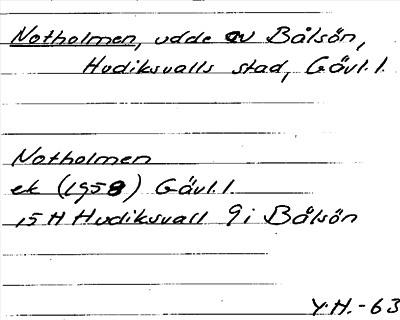 Notholmen, udde av Bålsön,
Hudiksvalls stad, Gävl.l.
Notholmen
ek (1958) Gävl.l
15 H Hudiksvall 9i Bålsön
Y.H.-63